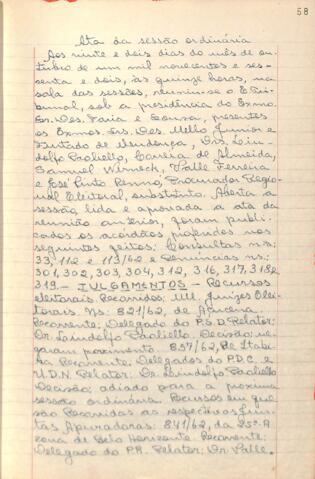 58
Ata da sessão ordinária
Aos vinte e dois dias do mês de ou-
tubro de um mil novecentos e ses-
senta e dois, às quinze horas, na
sala das sessões, reuniu-se o E. Tri-
bunal, sob a presidência do Exmo.
Sr. Des. Faria e Sousa, presentes
os Exmos. Srs. Des. Mello Junior e
Furtado de Mendonça, Drs. Lin-
dolfo Paoliello, Correia de Almeida,
Samuel Werneck, Valle Ferreira
e José Pinto Renno, Procurador Regio-
nal Eleitoral, substituto. Aberta a
sessão, lida e aprovada a ata da
reunião anterior, foram publi-
cados os acórdãos proferidos nos
seguintes feitos: Consultas ns.
33, 112 e 113/62 e denúncias ns.
301, 302, 303, 304, 312, 316, 317, 318 e
319. - JULGAMENTOS - Recursos
eleitorais. Recorridos: MM. Juízes Elei-
torais. Ns: 821/62, de Açucena.
Recorrente: Delegado do P.S.D. Relator:
Dr. Lindolfo Paoliello. Decisão: ne-
garam provimento. 857/62, de Itabi-
ra. Recorrente: Delegados do P.D.C. e
U.D.N. Relator: Dr. Lindolfo Paoliello
Decisão: adiado para a proxima
sessão ordinária. Recursos em que
são Recorridas as respectivas Jun-
tas Apuradoras: 841/62, da 25ª
zona de Belo Horizonte. Recorrente:
Delegado do P.R. Relator: Dr. Valle.